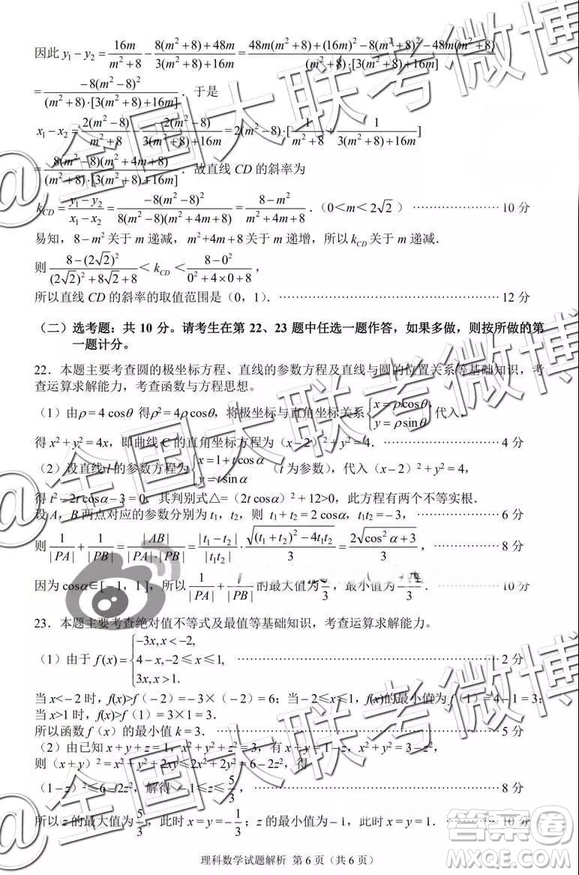 因此 y₁－y₂＝16m/(m²＋8)－[8(m²＋8)＋48m]/[3(m²＋8)＋16m]＝[48m(m²＋8)＋(16m)²－8(m²＋8)²－48m(m²＋8)]/{(m²＋8)·[3(m²＋8)＋16m]}
＝－8(m²－8)²/{(m²＋8)·[3(m²＋8)＋16m]}．于是
x₁－x₂＝2(m²－8)/(m²＋8)－－2(m²－8)/[3(m²＋8)＋16m]＝2(m²－8)·{1/(m²＋8)＋1/[3(m²＋8)＋16m]}
＝8(m²－8)(m²＋4m＋8)/{(m²＋8)·[3(m²＋8)＋16m]}．故直线 CD 的斜率为
k_CD＝(y₁－y₂)/(x₁－x₂)＝－8(m²－8)²/[8(m²－8)(m²＋4m＋8)]＝(8－m²)/(m²＋4m＋8)．（0＜m＜2√2） ················ 10 分
易知，8－m²关于 m 递减，m²＋4m＋8 关于 m 递增，所以 k_CD关于 m 递减．
则 [8－(2√2)²]/[(2√2)²＋8√2＋8]＜k_CD＜(8－0²)/(0²＋4×0＋8)，
所以直线 CD 的斜率的取值范围是（0，1）．················ 12 分
（二）选考题：共 10 分。请考生在第 22、23 题中任选一题作答，如果多做，则按所做的第
一题计分。
22．本题主要考查圆的极坐标方程、直线的参数方程及直线与圆的位置关系等基础知识，考
查运算求解能力，考查函数与方程思想。
（1）由ρ＝4 cosθ 得ρ²＝4ρcosθ，将极坐标与直角坐标关系{x＝ρcosθ, y＝ρsinθ 代入，
得 x²＋y²＝4x，即曲线 C 的直角坐标方程为（x－2）²＋y²＝4．················ 4 分
（2）设直线 l 的参数方程为{x＝1＋tcosα, y＝tsinα（t 为参数），代入（x－2）²＋y²＝4，
得 t²－2t cosα－3＝0，其判别式△＝（2t cosα）²＋12>0，此方程有两个不等实根．
设 A，B 两点对应的参数分别为 t₁，t₂，则 t₁＋t₂＝2 cosα，t₁t₂＝－3，················ 6 分
则 1/|PA|＋1/|PB|＝|AB|/(|PA|·|PB|)＝|t₁－t₂|/|t₁t₂|＝√[(t₁＋t₂)²－4t₁t₂]/3＝2√(cos²α＋3)/3，················ 8 分
因为 cosα∈[－1，1]，所以 1/|PA|＋1/|PB| 的最大值为 /3，最小值为 /3．················ 10 分
23．本题主要考查绝对值不等式及最值等基础知识，考查运算求解能力。
（1）由于 f(x)＝{－3x, x＜－2, 4－x, －2≤x≤1, 3x, x＞1. ················ 2 分
当 x<－2 时，f(x)>f（－2）＝－3×（－2）＝6；当－2≤x≤1 时，f(x)的最小值为 f（1）＝4－1＝3；
当 x>1 时，f(x)>f（1）＝3×1＝3．
所以函数 f（x）的最小值 k＝3．················ 5 分
（2）由已知 x＋y＋z＝1，x²＋y²＋z²＝3，有 x＋y＝1－z，x²＋y²＝3－z²，
则（x＋y）²＝x²＋y²＋2xy≤2x²＋2y²＝6－2z²，得
（1－z）²≤6－2z²，解得－1≤z≤5/3，················ 8 分
所以 z 的最大值为5/3，此时 x＝y＝－1/3；z 的最小值为－1，此时 x＝y＝1．················ 10 分
理科数学试题解析 第 6 页（共 6 页）
@全国大联考微博
@全国大联考微博
答案圈